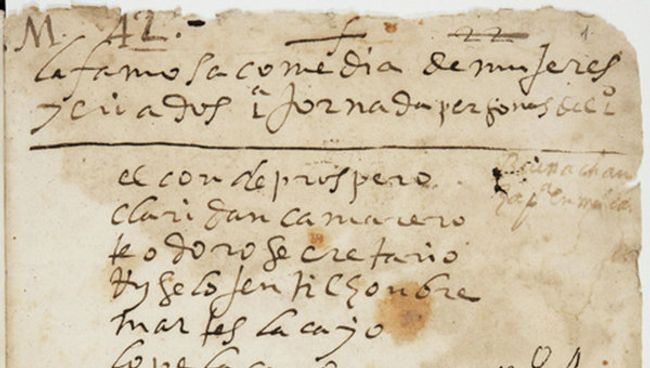 M. 42.- 22 1
la famosa comedia de mujeres
y criados 1ª Jornada personas del 1º
el conde prospero
claridan camarero
teodoro secretario
Ryselo jentilhonbre
martes lacayo
lope